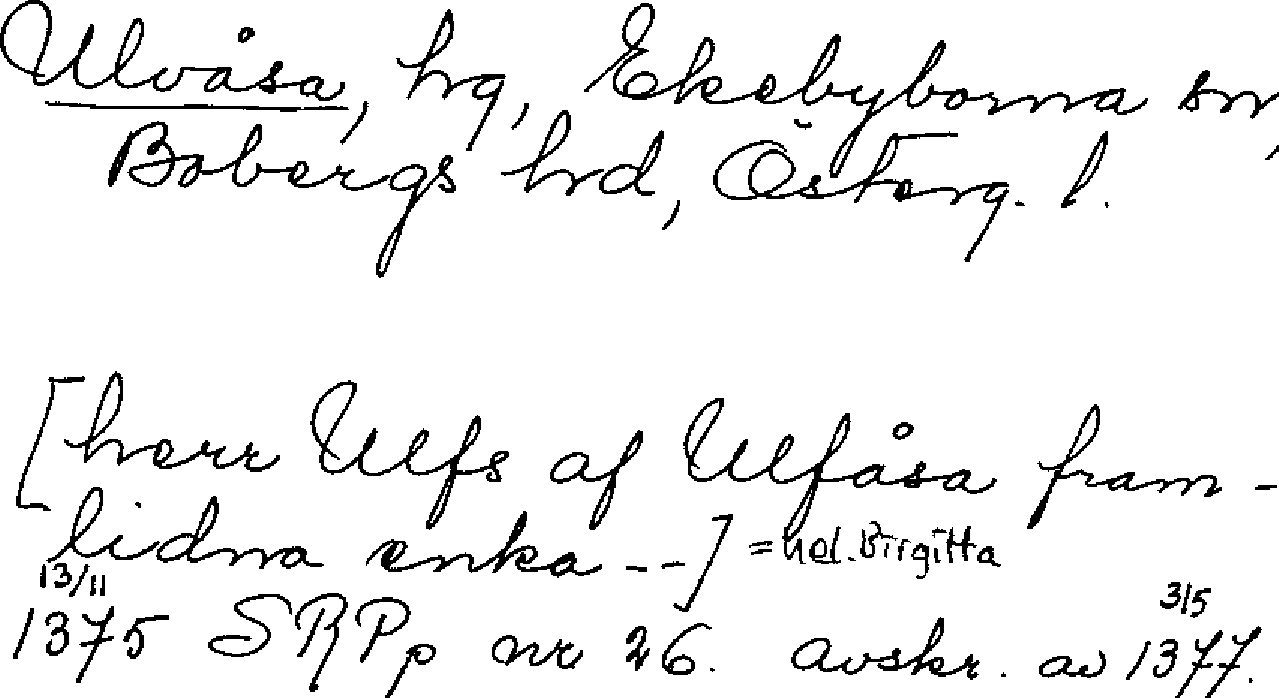 Ulvåsa, hrg, Ekebyborna sn,
Bobergs hrd, Österg. l.
[herr Ulfs af Ulfåsa fram-
lidna enka --] = hel. Birgitta
13/11 3/5
1375 SRPp nr 26. avskr. av 1377.